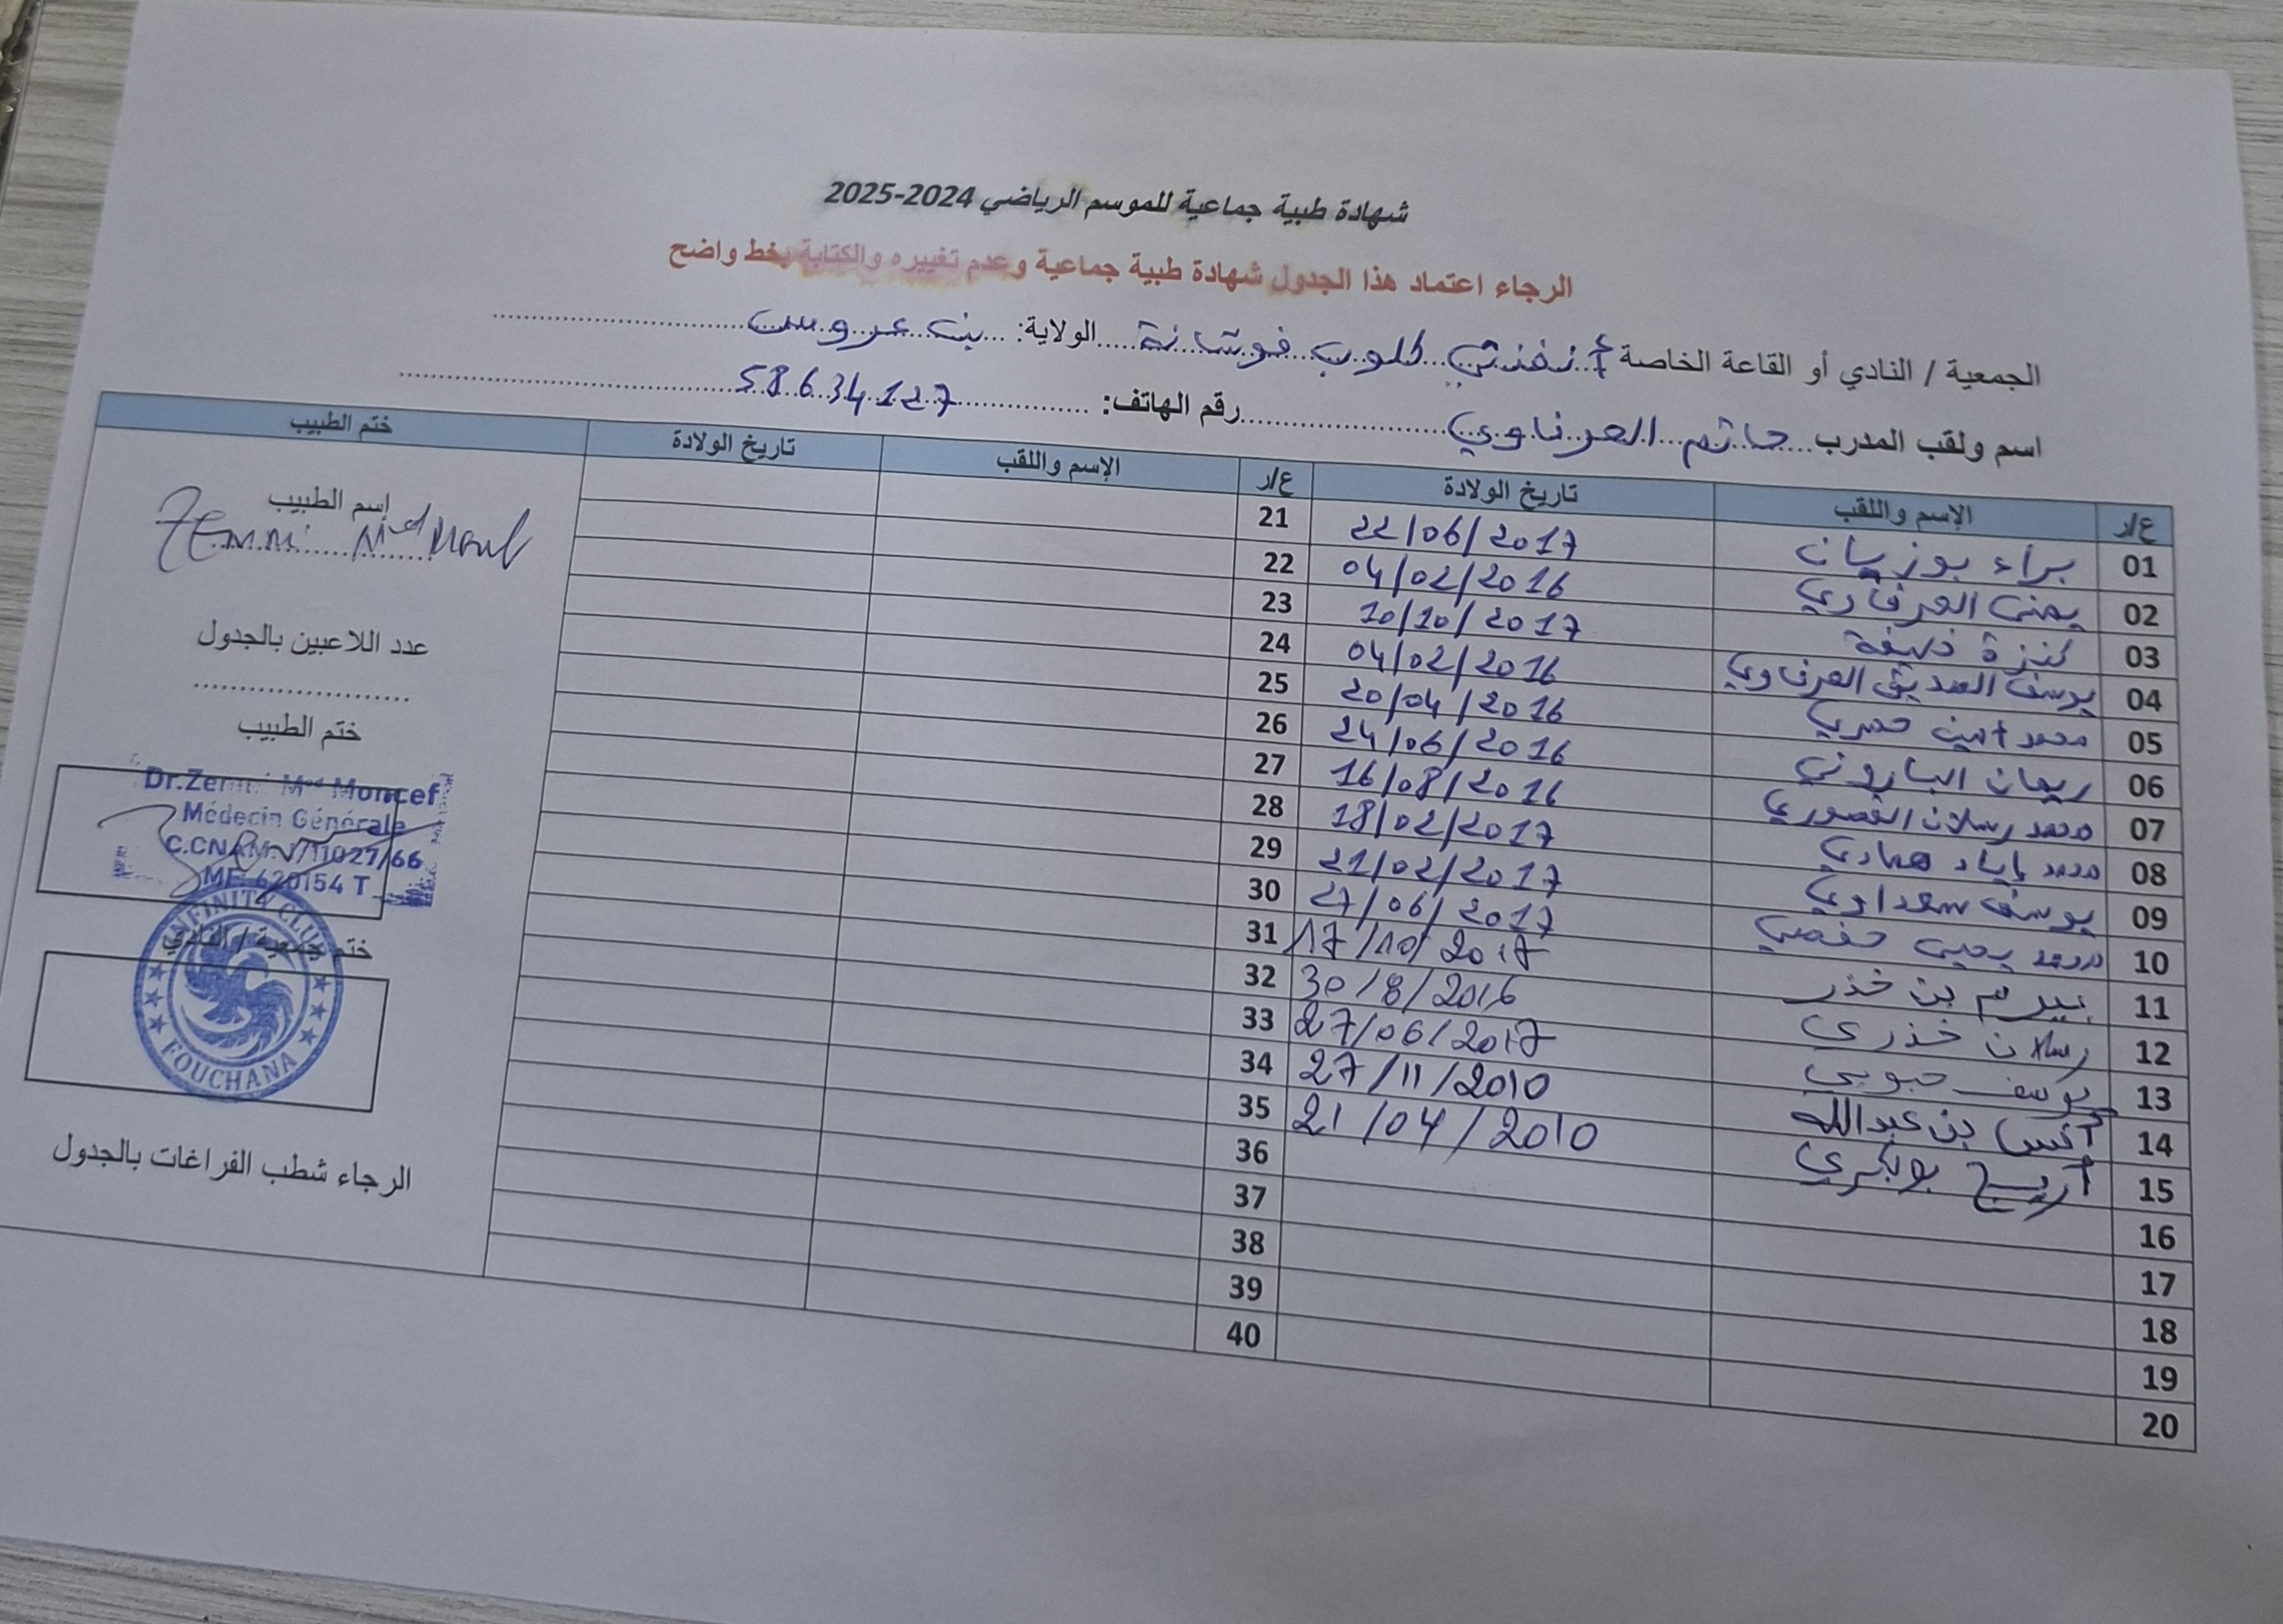 شهادة طبية جماعية للموسم الرياضي 2024-2025
الرجاء اعتماد هذا الجدول شهادة طبية جماعية وعدم تغييره والكتابة بخط واضح
الجمعية / النادي أو القاعة الخاصة أنفنتي كلوب فوشانة الولاية: بن عروس
اسم ولقب المدرب حاتم العرفاوي رقم الهاتف: 58634127
ع/ر الإسم واللقب تاريخ الولادة ع/ر الإسم واللقب تاريخ الولادة ختم الطبيب
01 براء بوزيان 22/06/2017 21
02 يمنى العرفاوي 04/02/2016 22
03 كنزة خليفة 10/10/2017 23
04 يوسف الصديق العرفاوي 04/02/2016 24
05 محمد أمين حمري 20/04/2016 25
06 ريهان الباروني 24/06/2016 26
07 محمد رسلان القصوري 16/08/2016 27
08 محمد إياد همادي 18/02/2017 28
09 يوسف سعداوي 21/02/2017 29
10 محمد يحيى حفصي 27/06/2017 30
11 بيرم بن خذر 17/10/2017 31
12 رسلان خذري 30/8/2016 32
13 يوسف حبوبي 27/06/2017 33
14 أنس بن عبدالله 27/11/2010 34
15 أريج بوبكري 21/04/2010 35
16 36
17 37
18 38
19 39
20 40
إسم الطبيب
Zemni Med
عدد اللاعبين بالجدول
ختم الطبيب
Dr.Zemni Med Moncef
Médecin Générale
C.CNAM: 1/11027/66
MF: 620154 T
ختم جمعية / النادي
INFINITY CLUB
FOUCHANA
الرجاء شطب الفراغات بالجدول